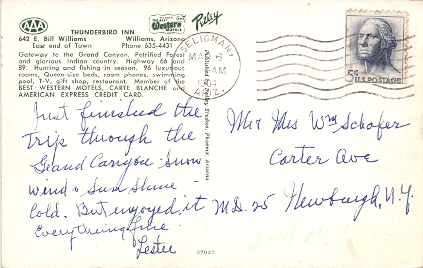 AAA
Best Western Motels
Petley
THUNDERBIRD INN
642 E. Bill Williams Williams, Arizona
East end of Town Phone 635-4431
Gateway to the Grand Canyon, Petrified Forest
and glorious Indian country. Highway 66 and
89. Hunting and fishing in season. 96 luxurious
rooms, Queen-size beds, room phones, swimming
pool, T-V, gift shop, restaurant. Member of the
BEST WESTERN MOTELS, CARTE BLANCHE and
AMERICAN EXPRESS CREDIT CARD.
Just finished the
trip through the
Grand Canyon. Snow
wind & Sun Shine
Cold. But enjoyed it
Everything fine
Lester
Petley Studios, Phoenix, Arizona
SELIGMAN
AM
ARIZ.
5¢ U.S. POSTAGE
Mr & Mrs Wm Schofer
Carter Ave
M.D. 25 Newburgh, N.Y.
37027